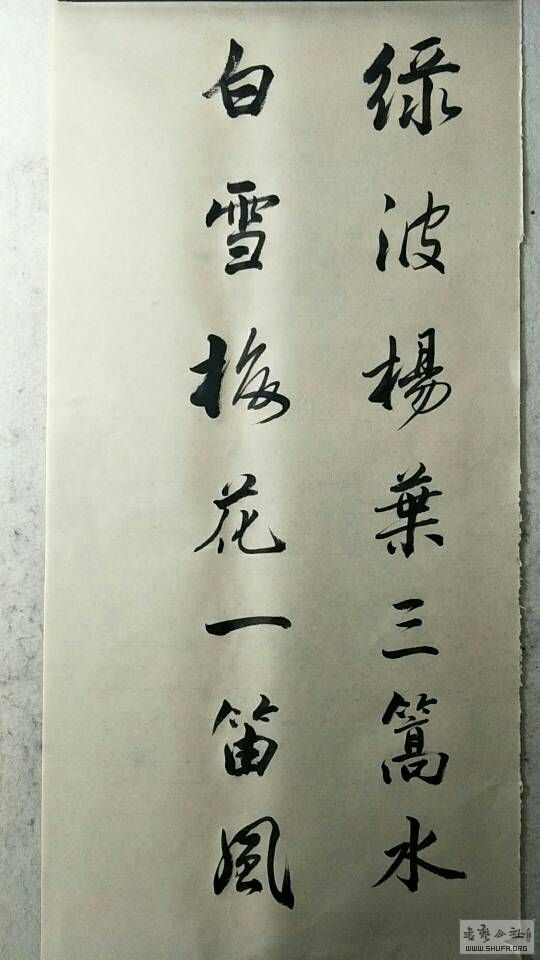 綠波楊葉三篙水
白雪梅花一笛風
WWW.SHUFA.ORG